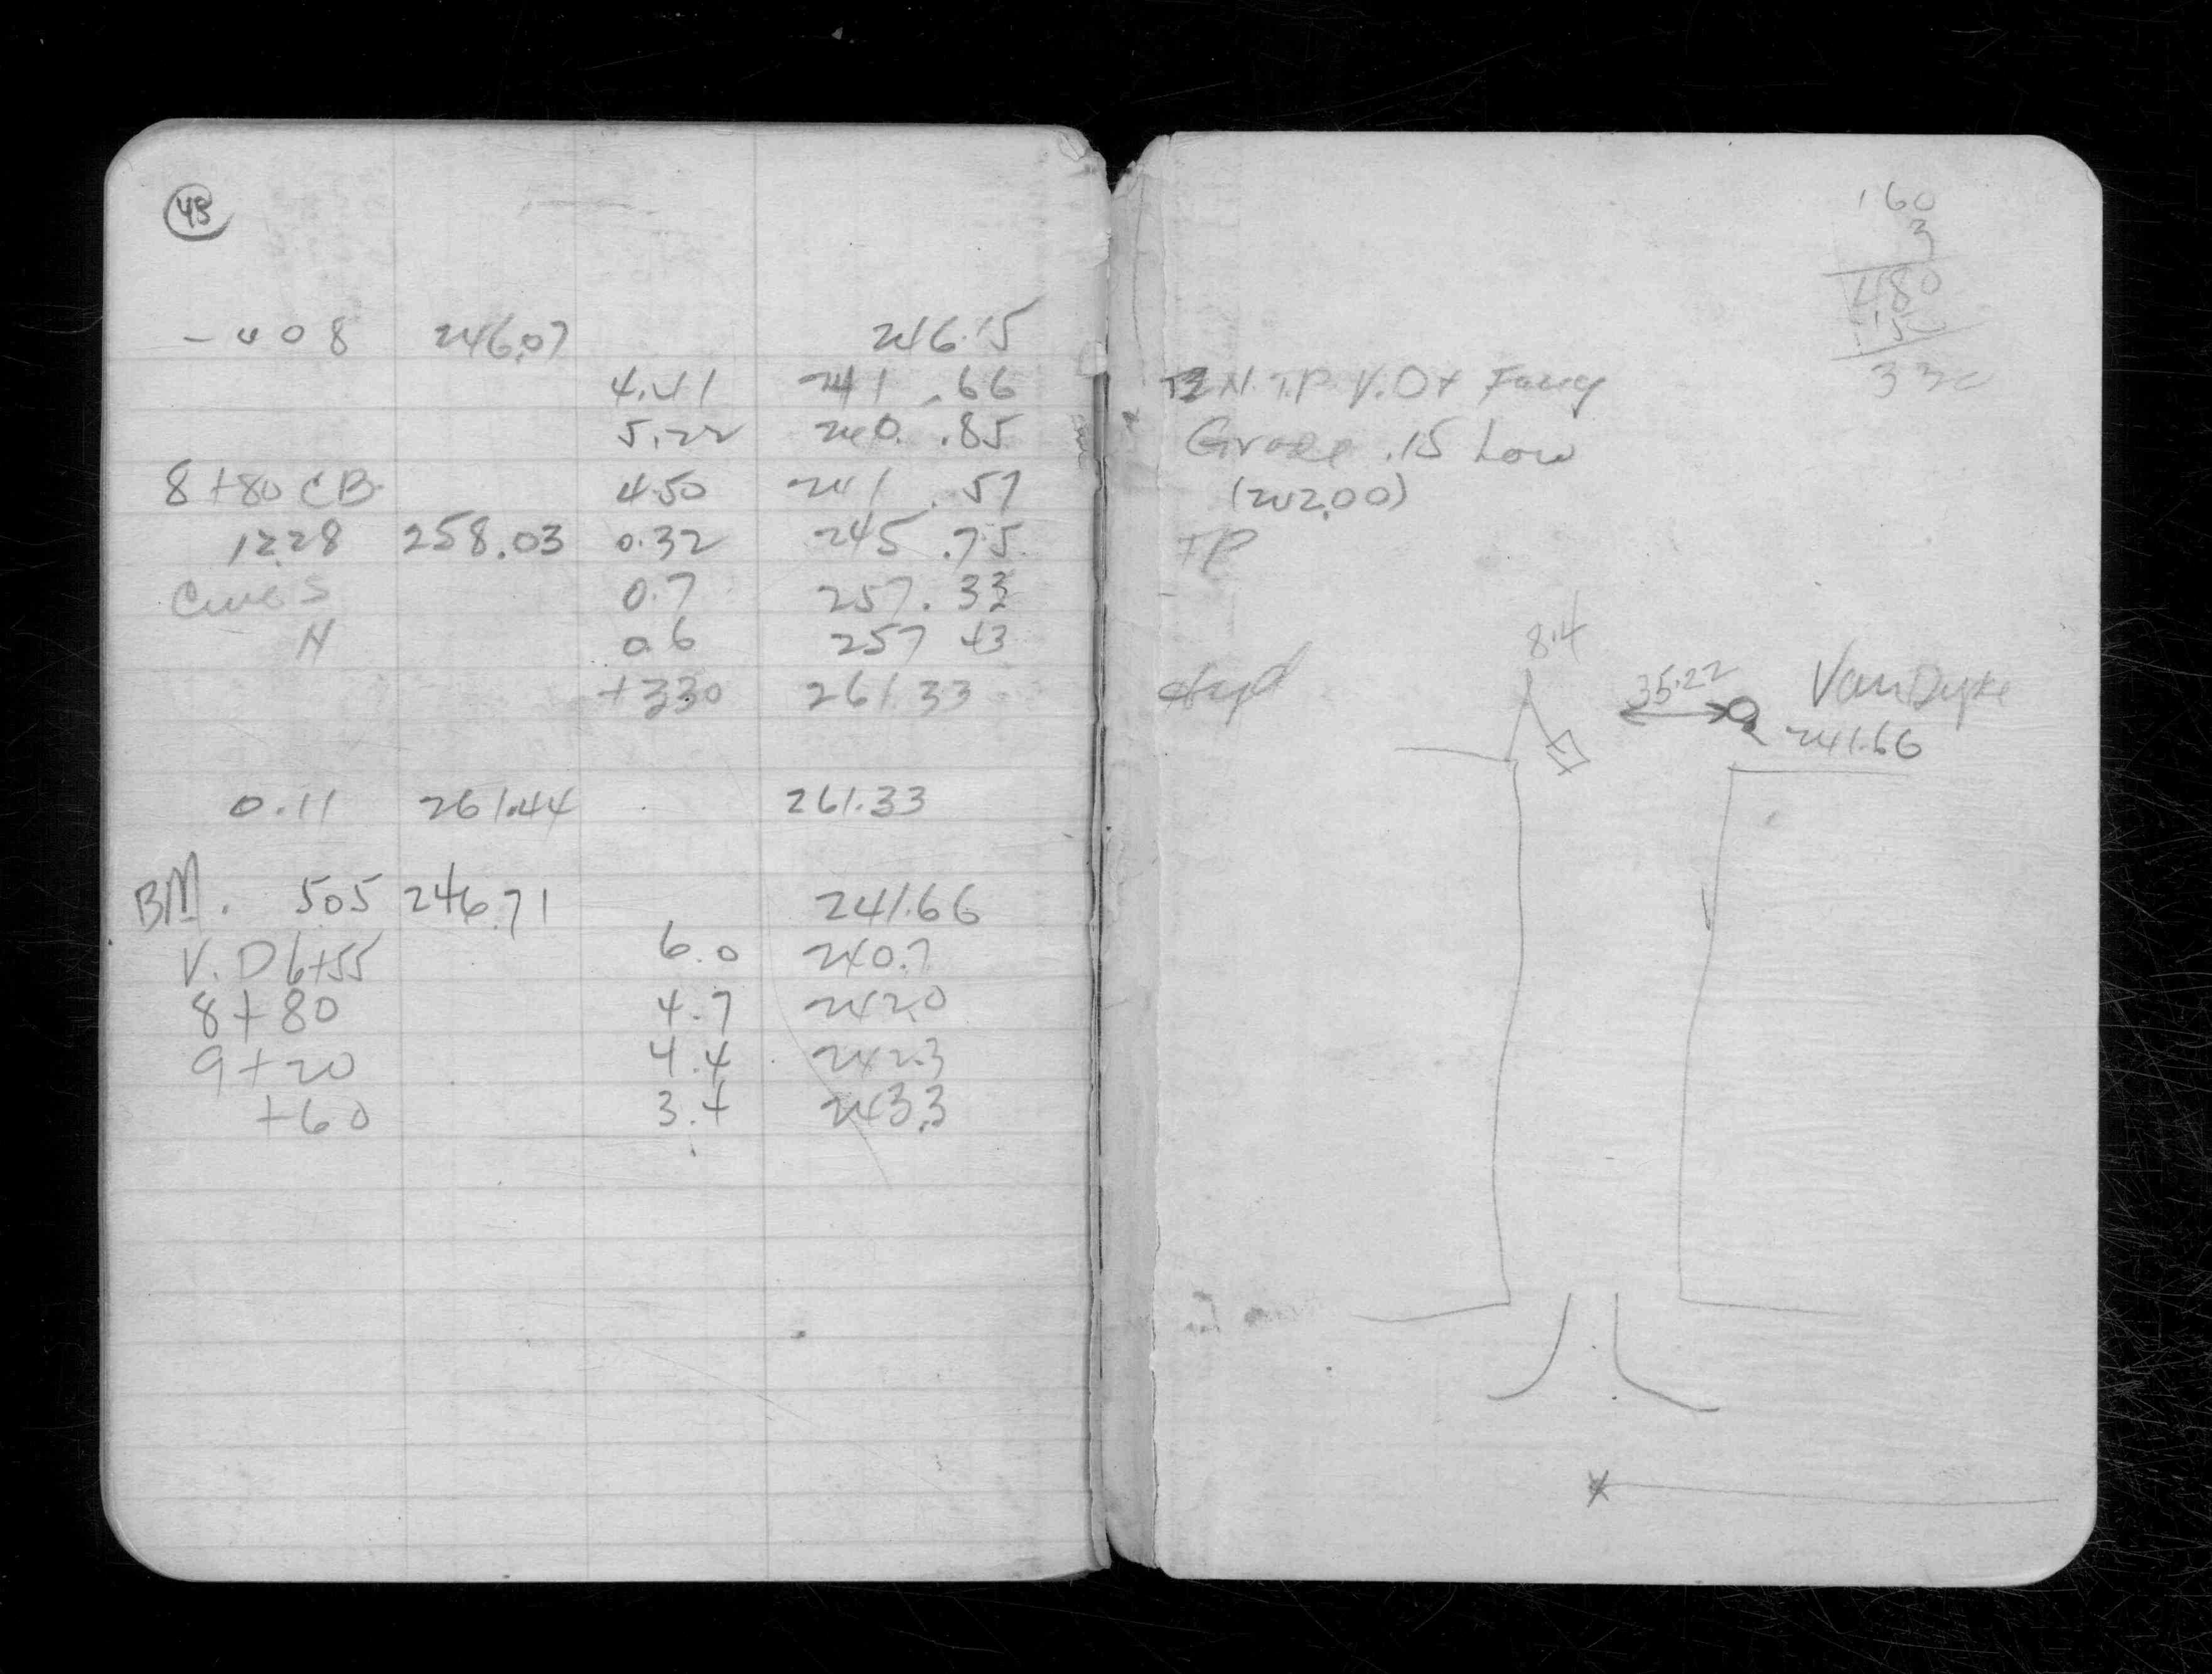 48
- 0 0 8 246.07 246.15
4.41 241.66
5.22 240.85
8+80 CB 4.50 241.57
12.28 258.03 0.32 245.75
0.7 257.33
N 0.6 257 43
+3.30 261.33
0.11 261.44 261.33
BM. 505 246.71 241.66
V.D 6+55 6.0 240.7
8+80 4.7 242.0
9+20 4.4 242.3
+60 3.4 243.3
160
3
480
150
330
N. T.P. V.D+
Grade .15 Low
(242.00)
TP
Hyd
8.4
35.22
Van Dyke
241.66